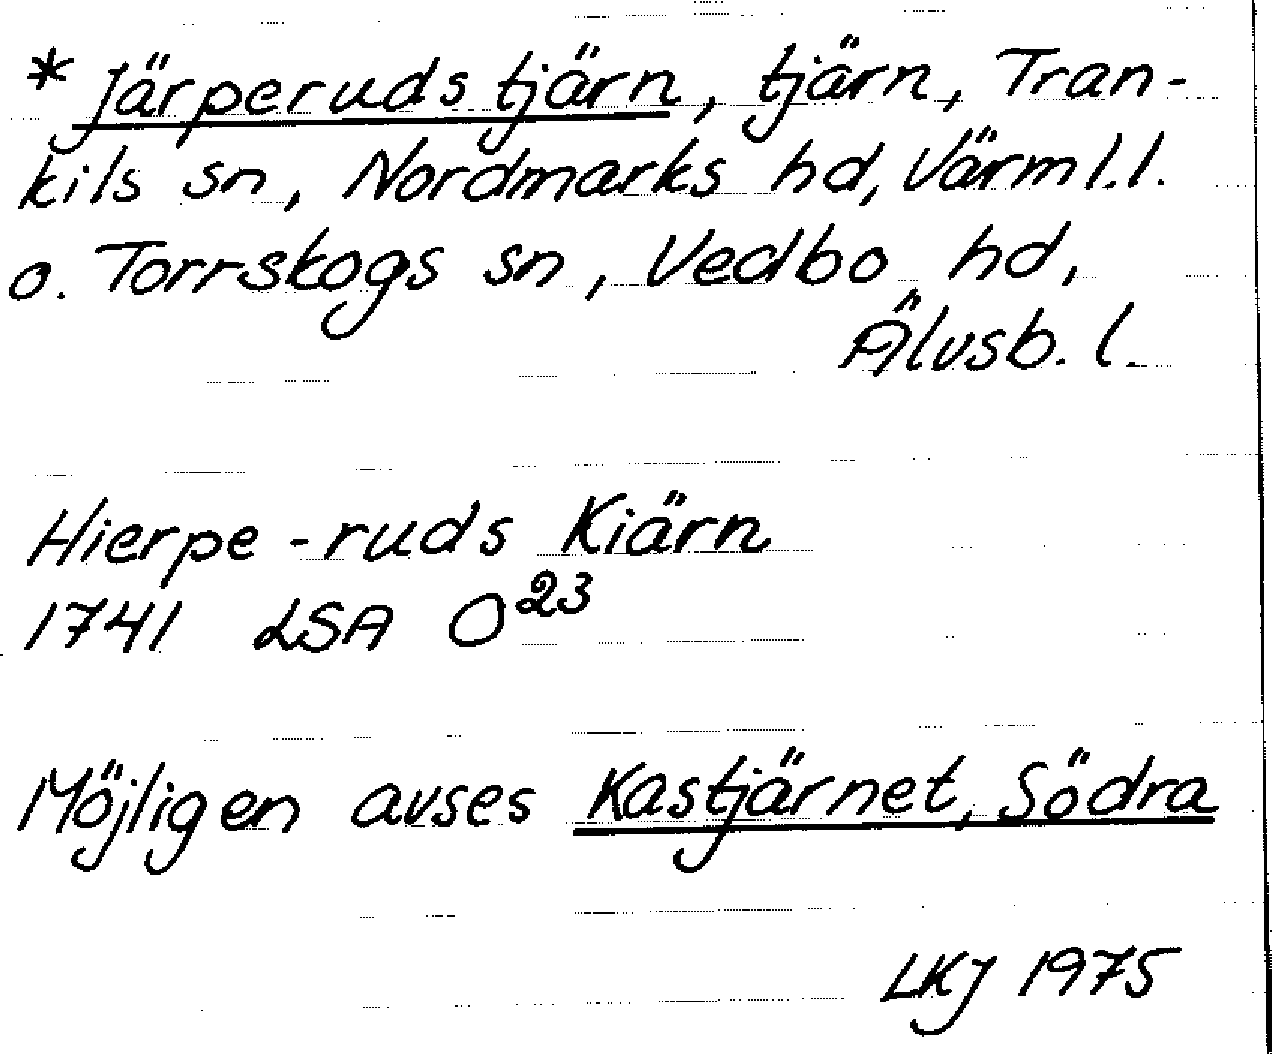 * Järperudstjärn, tjärn, Tran-
kils sn, Nordmarks hd, Värml.l.
o. Torrskogs sn, Vedbo hd,
Älvsb. l.
Hierpe-ruds Kiärn
1741 LSA O23
Möjligen avses Kastjärnet, Södra
LKJ 1975